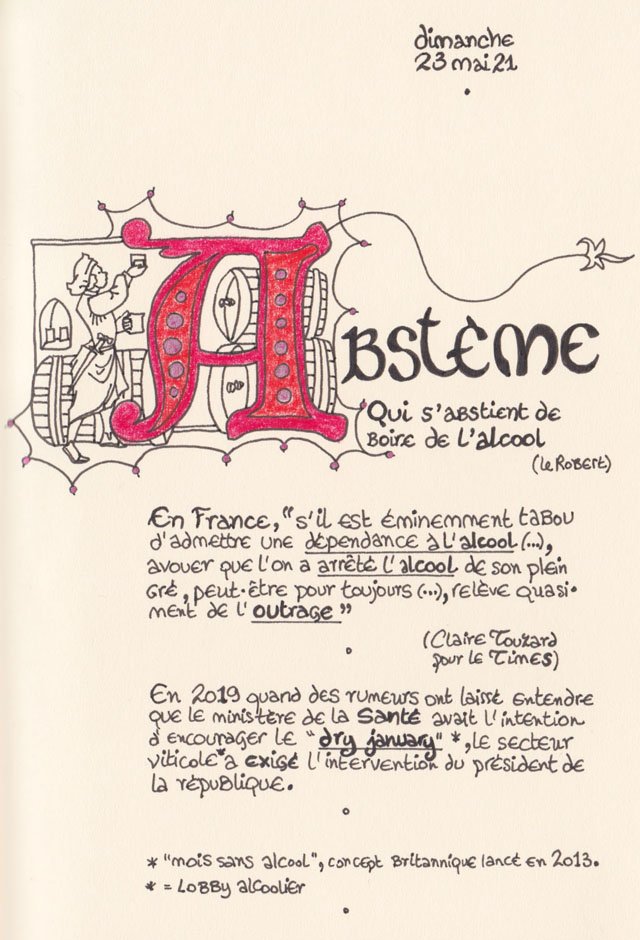 dimanche
23 mai 21
Abstème
Qui s'abstient de
boire de l'alcool
(le Robert)
En France, "s'il est éminemment tabou
d'admettre une dépendance à l'alcool (...),
avouer que l'on a arrêté l'alcool de son plein
gré, peut-être pour toujours (...), relève quasi-
ment de l'outrage"
(Claire Touzard
pour le Times)
En 2019 quand des rumeurs ont laissé entendre
que le ministère de la Santé avait l'intention
d'encourager le "dry january" *, le secteur
viticole* a exigé l'intervention du président de
la république.
* "mois sans alcool", concept britannique lancé en 2013.
* = Lobby alcoolier